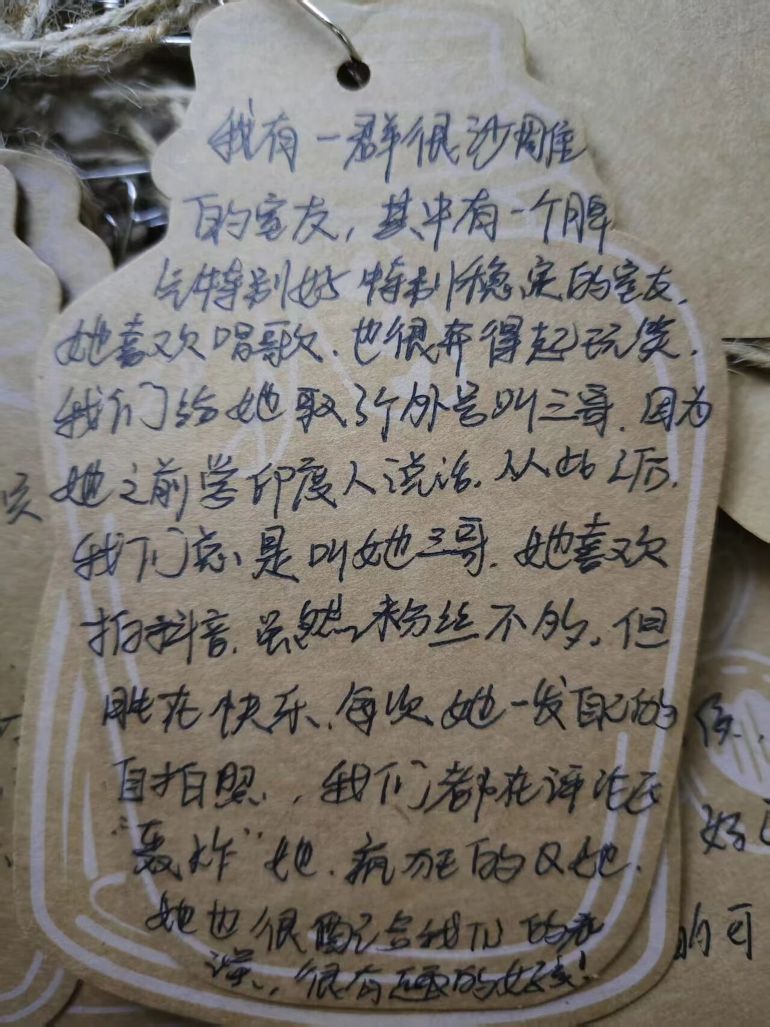 我有一群很沙雕
的室友,其中有一个脾
气特别好特别稳定的室友.
她喜欢唱歌.也很得起玩笑.
我们给她取了个外号叫三哥.因为
她之前学印度人说话.从此以后.
我们总是叫她三哥.她喜欢
拍抖音.虽然粉丝不多.但
胜在快乐、每次她一发自己的
自拍照.,我们都在评论区
"轰炸"她.疯狂的Q她.
她也很配合我们的表
演.,很有趣的好友!
好
的可